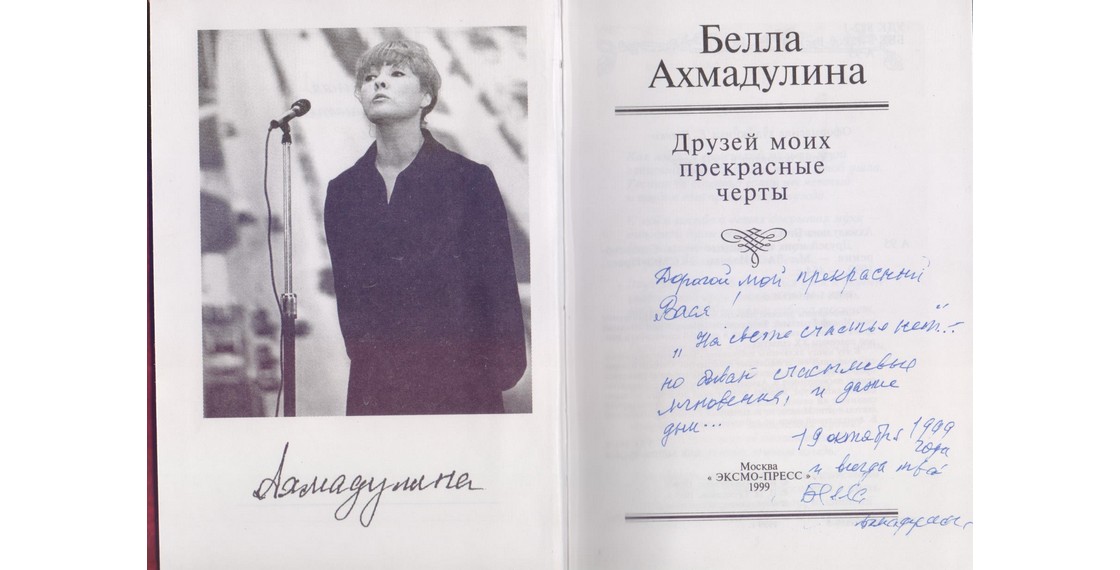 Ахмадулина
Белла
Ахмадулина
Друзей моих
прекрасные
черты
Дорогой мой прекрасный
Вася!
„На свете счастья нет..."–
но бывают счастливые
мгновения, и даже
дни...
19 октября 1999
года
и всегда твоя
Белла
Ахмадулина
Москва
« ЭКСМО-ПРЕСС »
1999